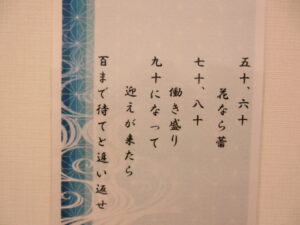 五十、六十
花なら蕾
七十、八十
働き盛り
九十になって
迎えが来たら
百まで待てと追い返せ